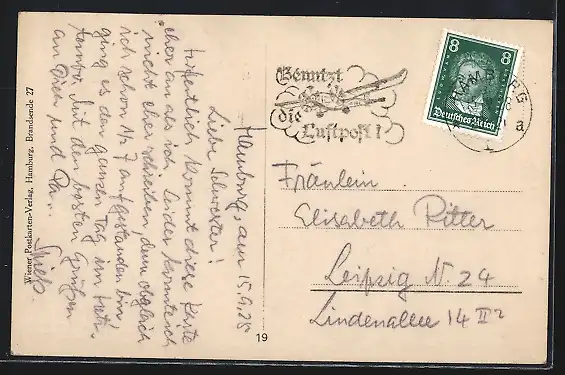 Hamburg, am 15.9.28
Liebe Schwester!
Hoffentlich kommt diese Karte
eher an als ich. Leider konnte ich
nicht eher schreiben denn obgleich
ich schon ½ 7 aufgestanden bin
ging es den ganzen Tag im
Mit den besten Grüßen
an Dich und Pa..
Wiener Postkarten-Verlag, Hamburg, Brandsende 27
19
Benutzt
die
Luftpost!
HAMBURG
a
1
8
8
Deutsches Reich
Fräulein
Elisabeth Ritter
Leipzig N. 24
Lindenallee 14 II